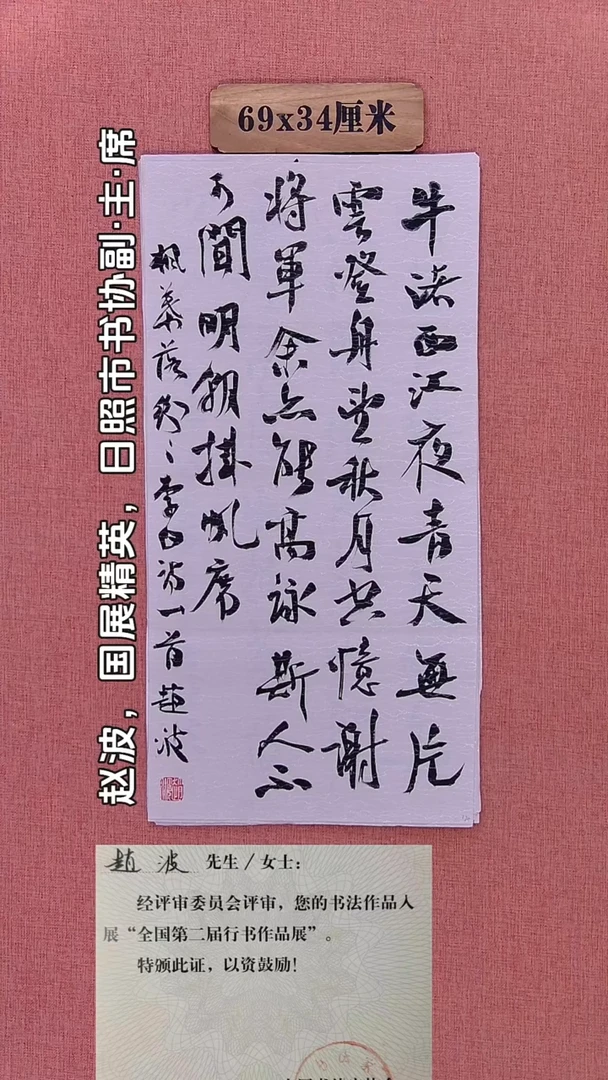 69x34厘米
赵波，国展精英，日照市书协副·主·席
牛渚西江夜青天無片
雲登舟望秋月空憶謝
將軍余亦能高詠斯人不
可聞明朝掛帆席
楓葉落紛〻李白詩一首趙波
趙波 先生/女士：
经评审委员会评审，您的书法作品入
展“全国第二届行书作品展”。
特颁此证，以资鼓励！